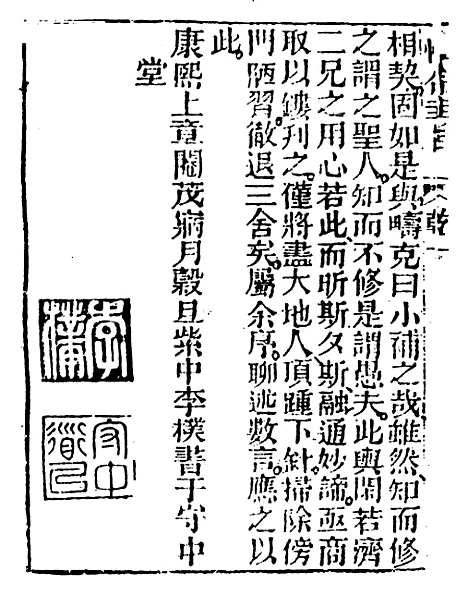 相契。固如是與。疇克曰小補之哉。雖然、知而修
之、謂之聖人。知而不修、是謂愚夫。此與閑若濟
二兄之用心若此。而昕斯夕斯、融通妙諦。亟商
取以鏤刋之。僅將盡大地人、頂踵下針。掃除傍
門陋習、徹退三舍矣。屬余序。聊述數言。應之以
此。
康熙上章閹茂病月穀旦紫中李樸書于守中
堂
李樸
守中道人